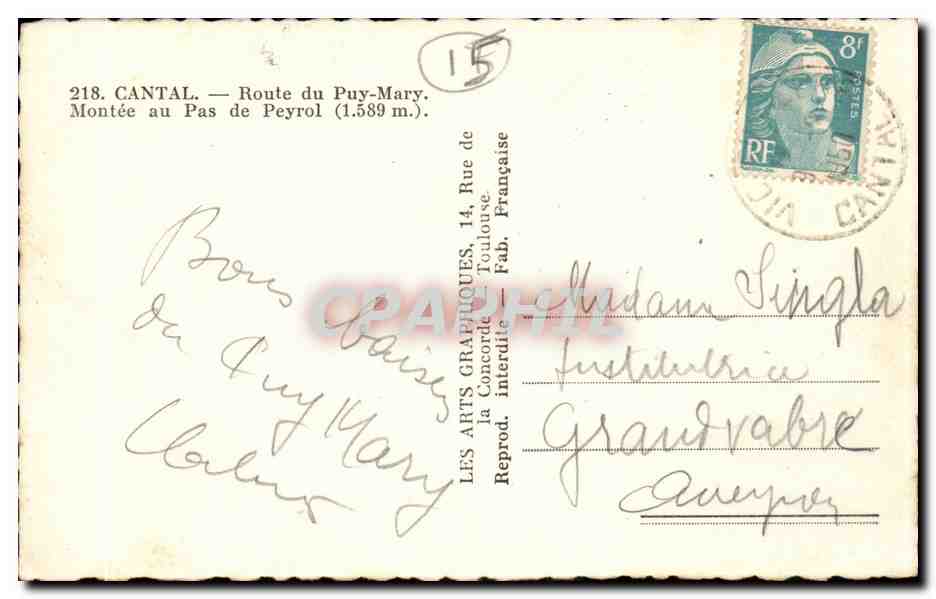 15
8F
POSTES
RF
CANTAL
218. CANTAL. — Route du Puy-Mary.
Montée au Pas de Peyrol (1.589 m.).
Bons baisers
du Puy Mary
LES ARTS GRAPHIQUES, 14, Rue de
la Concorde - Toulouse
Reprod. interdite — Fab. Française
CPAPHIL
Madame Singla
Institutrice
Grandvabre
Aveyron